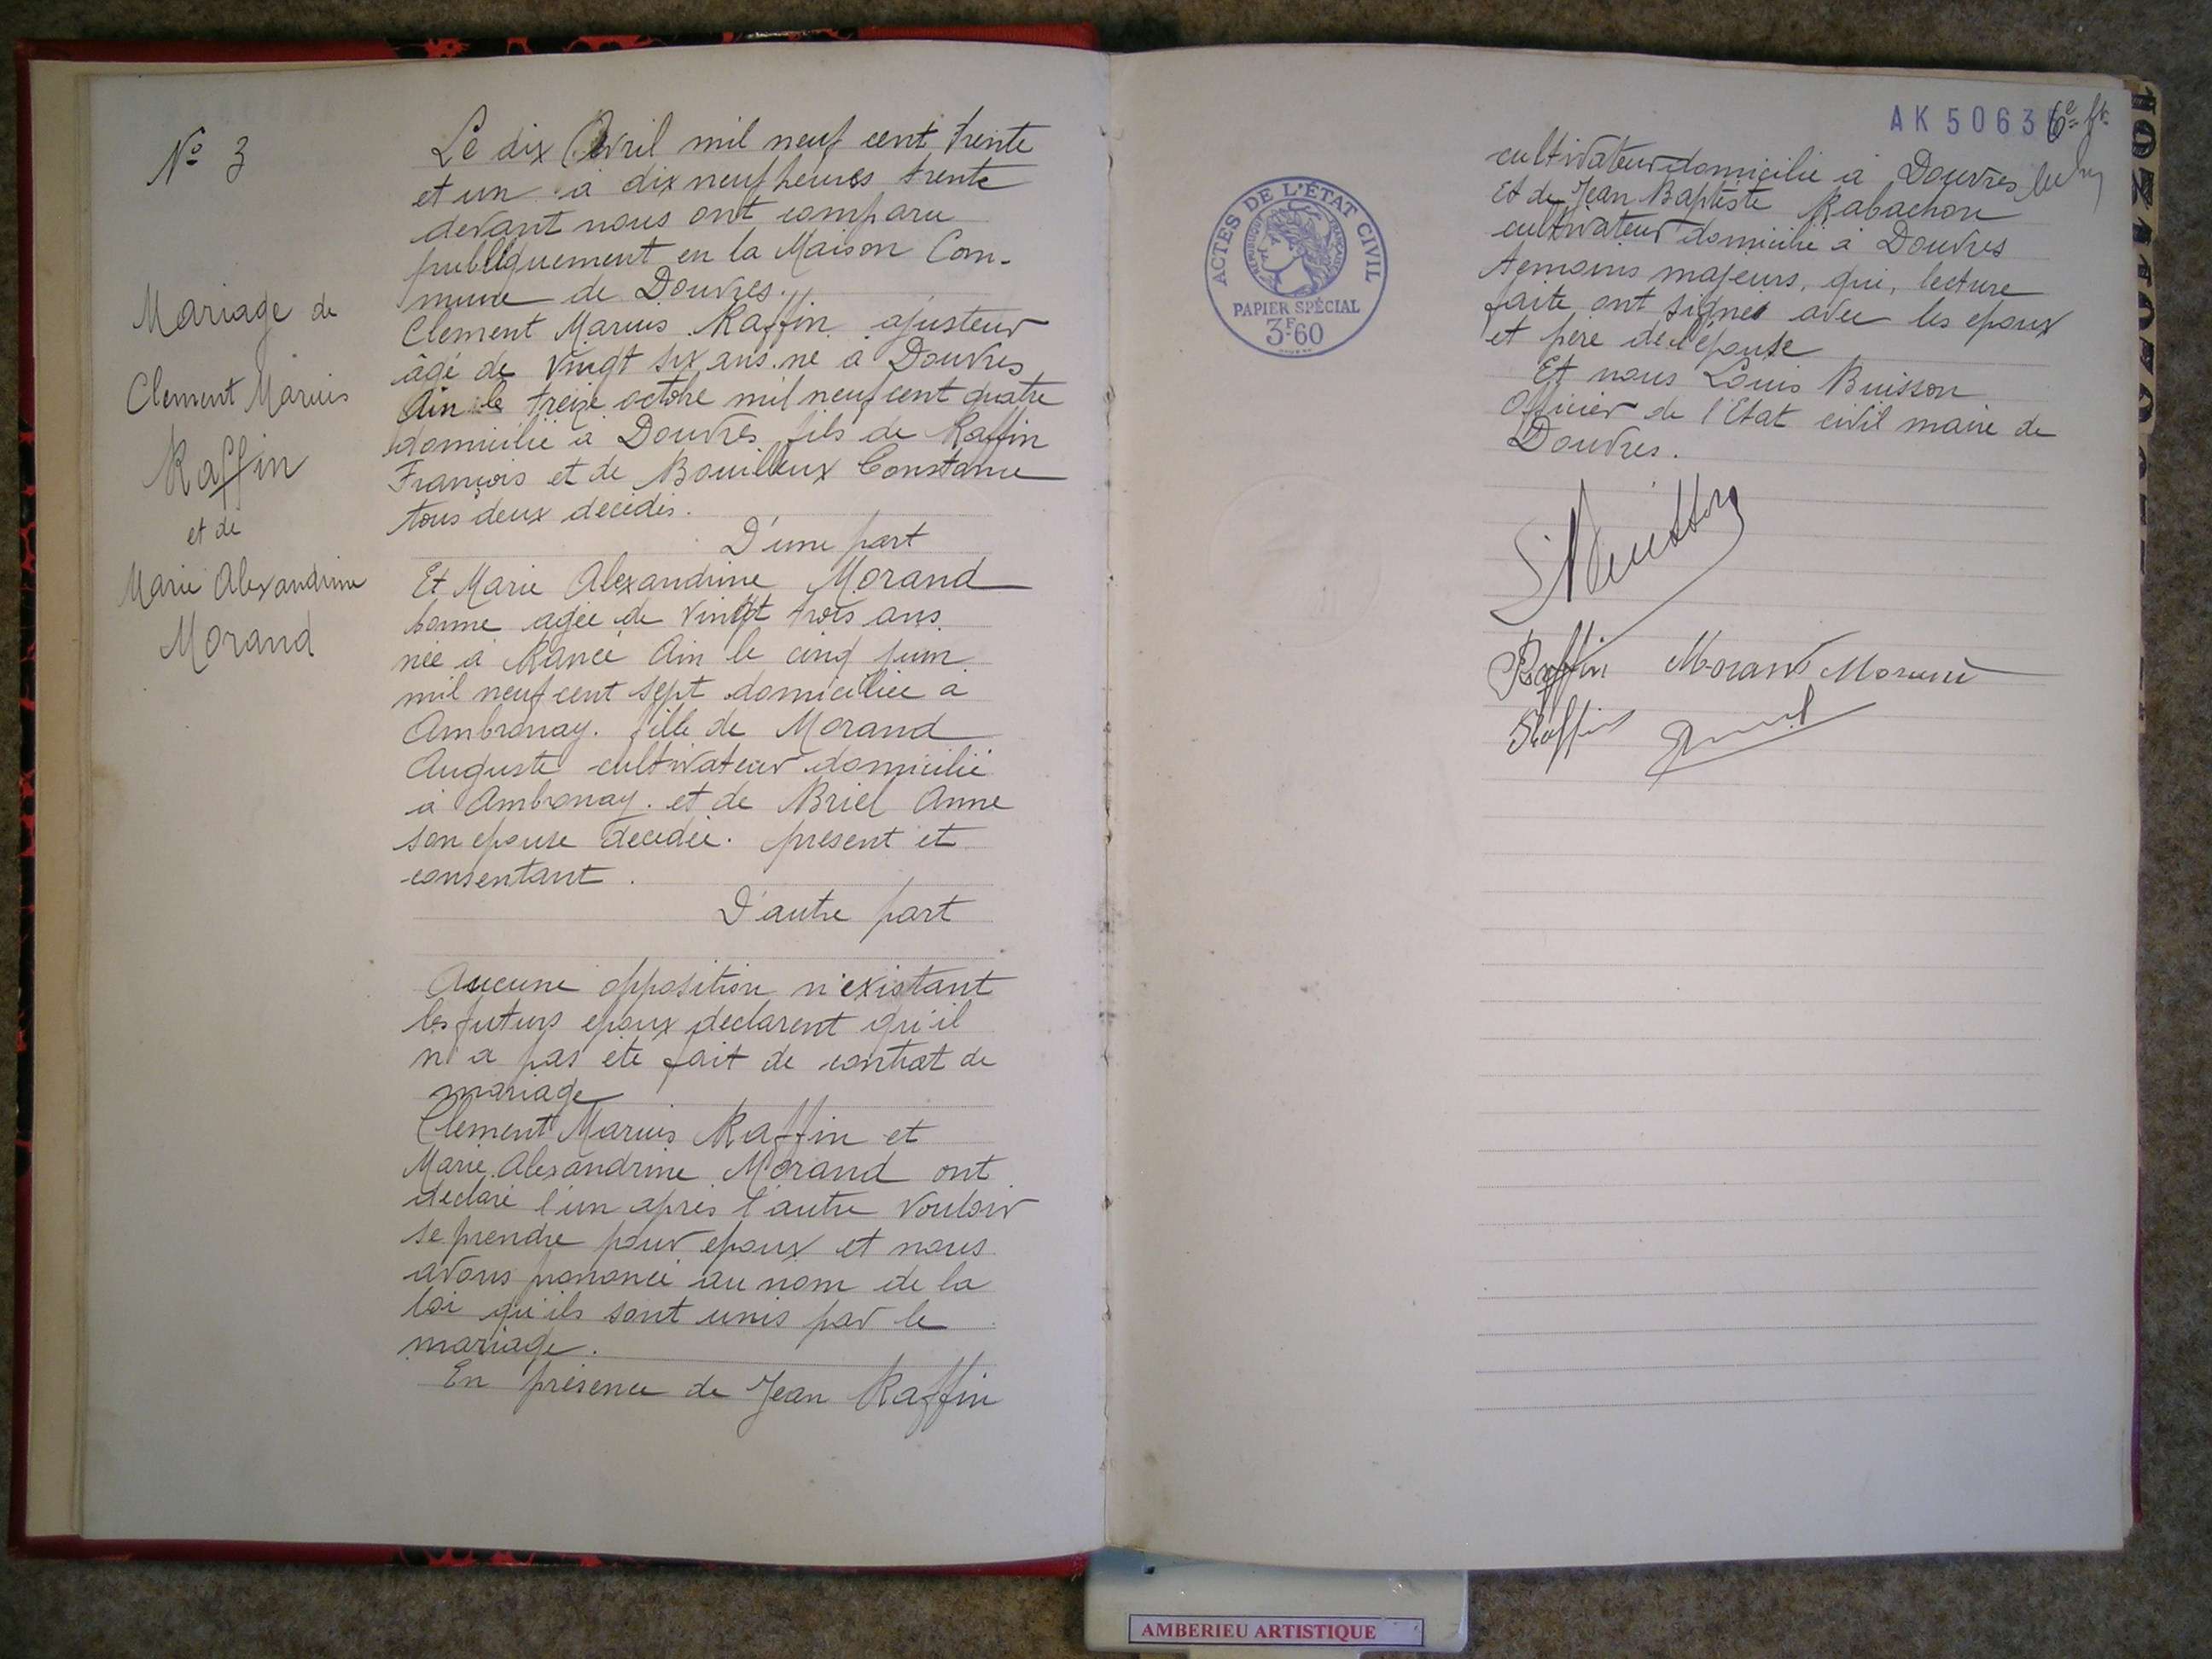 N° 3
Mariage de
Clement Marius
Raffin
et de
Marie Alexandrine
Morand
Le dix Avril mil neuf cent trente
et un à dix neuf heures trente
devant nous ont comparu
publiquement en la Maison Com-
mune de Douvres.
Clement Marius Raffin ajusteur
âgé de vingt six ans né à Douvres
Ain le treize octobre mil neuf cent quatre
domicilié à Douvres fils de Raffin
François et de Bouilleux Constance
tous deux décédés.
D'une part
Et Marie Alexandrine Morand
bonne agée de vingt trois ans
née à Rancé Ain le cinq juin
mil neuf cent sept domiciliée à
Ambronay. fille de Morand
Auguste cultivateur domicilié
à Ambronay. et de Briel Anne
son epouse décédée. présent et
consentant.
D'autre part
Aucune opposition n'existant
les futurs epoux declarent qu'il
n'a pas été fait de contrat de
mariage
Clement Marius Raffin et
Marie Alexandrine Morand ont
declaré l'un après l'autre vouloir
se prendre pour epoux et nous
avons prononcé au nom de la
loi qu'ils sont unis par le
mariage.
En présence de Jean Raffin
ACTES DE L'ÉTAT CIVIL
RÉPUBLIQUE FRANÇAISE
PAPIER SPÉCIAL
3F60
AK 5063
6e ft
cultivateur domicilié à Douvres
Et de Jean Baptiste Rabachon
cultivateur domicilié à Douvres
temoins majeurs, qui, lecture
faite ont signé avec les epoux
et père de l'épouse
Et nous Louis Buisson
Officier de l'Etat civil maire de
Douvres.
LBuisson
Raffin Morand Morand
Raffin
AMBERIEU ARTISTIQUE